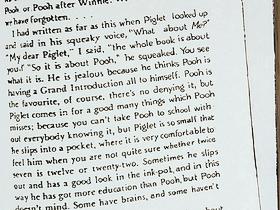 Pooh or Pooh after Winnie.
we have forgotten. . . .
I had written as far as this when Piglet looked up
and said in his squeaky voice, "What about Me?"
"My dear Piglet," I said, "the whole book is about
you." "So it is about Pooh," he squeaked. You see
what it is. He is jealous because he thinks Pooh is
having a Grand Introduction all to himself. Pooh is
the favourite, of course, there's no denying it, but
Piglet comes in for a good many things which Pooh
misses; because you can't take Pooh to school with-
out everybody knowing it, but Piglet is so small that
he slips into a pocket, where it is very comfortable to
feel him when you are not quite sure whether twice
seven is twelve or twenty-two. Sometimes he slips
out and has a good look in the ink-pot, and in this
way he has got more education than Pooh, but Pooh
doesn't mind. Some have brains, and some haven't